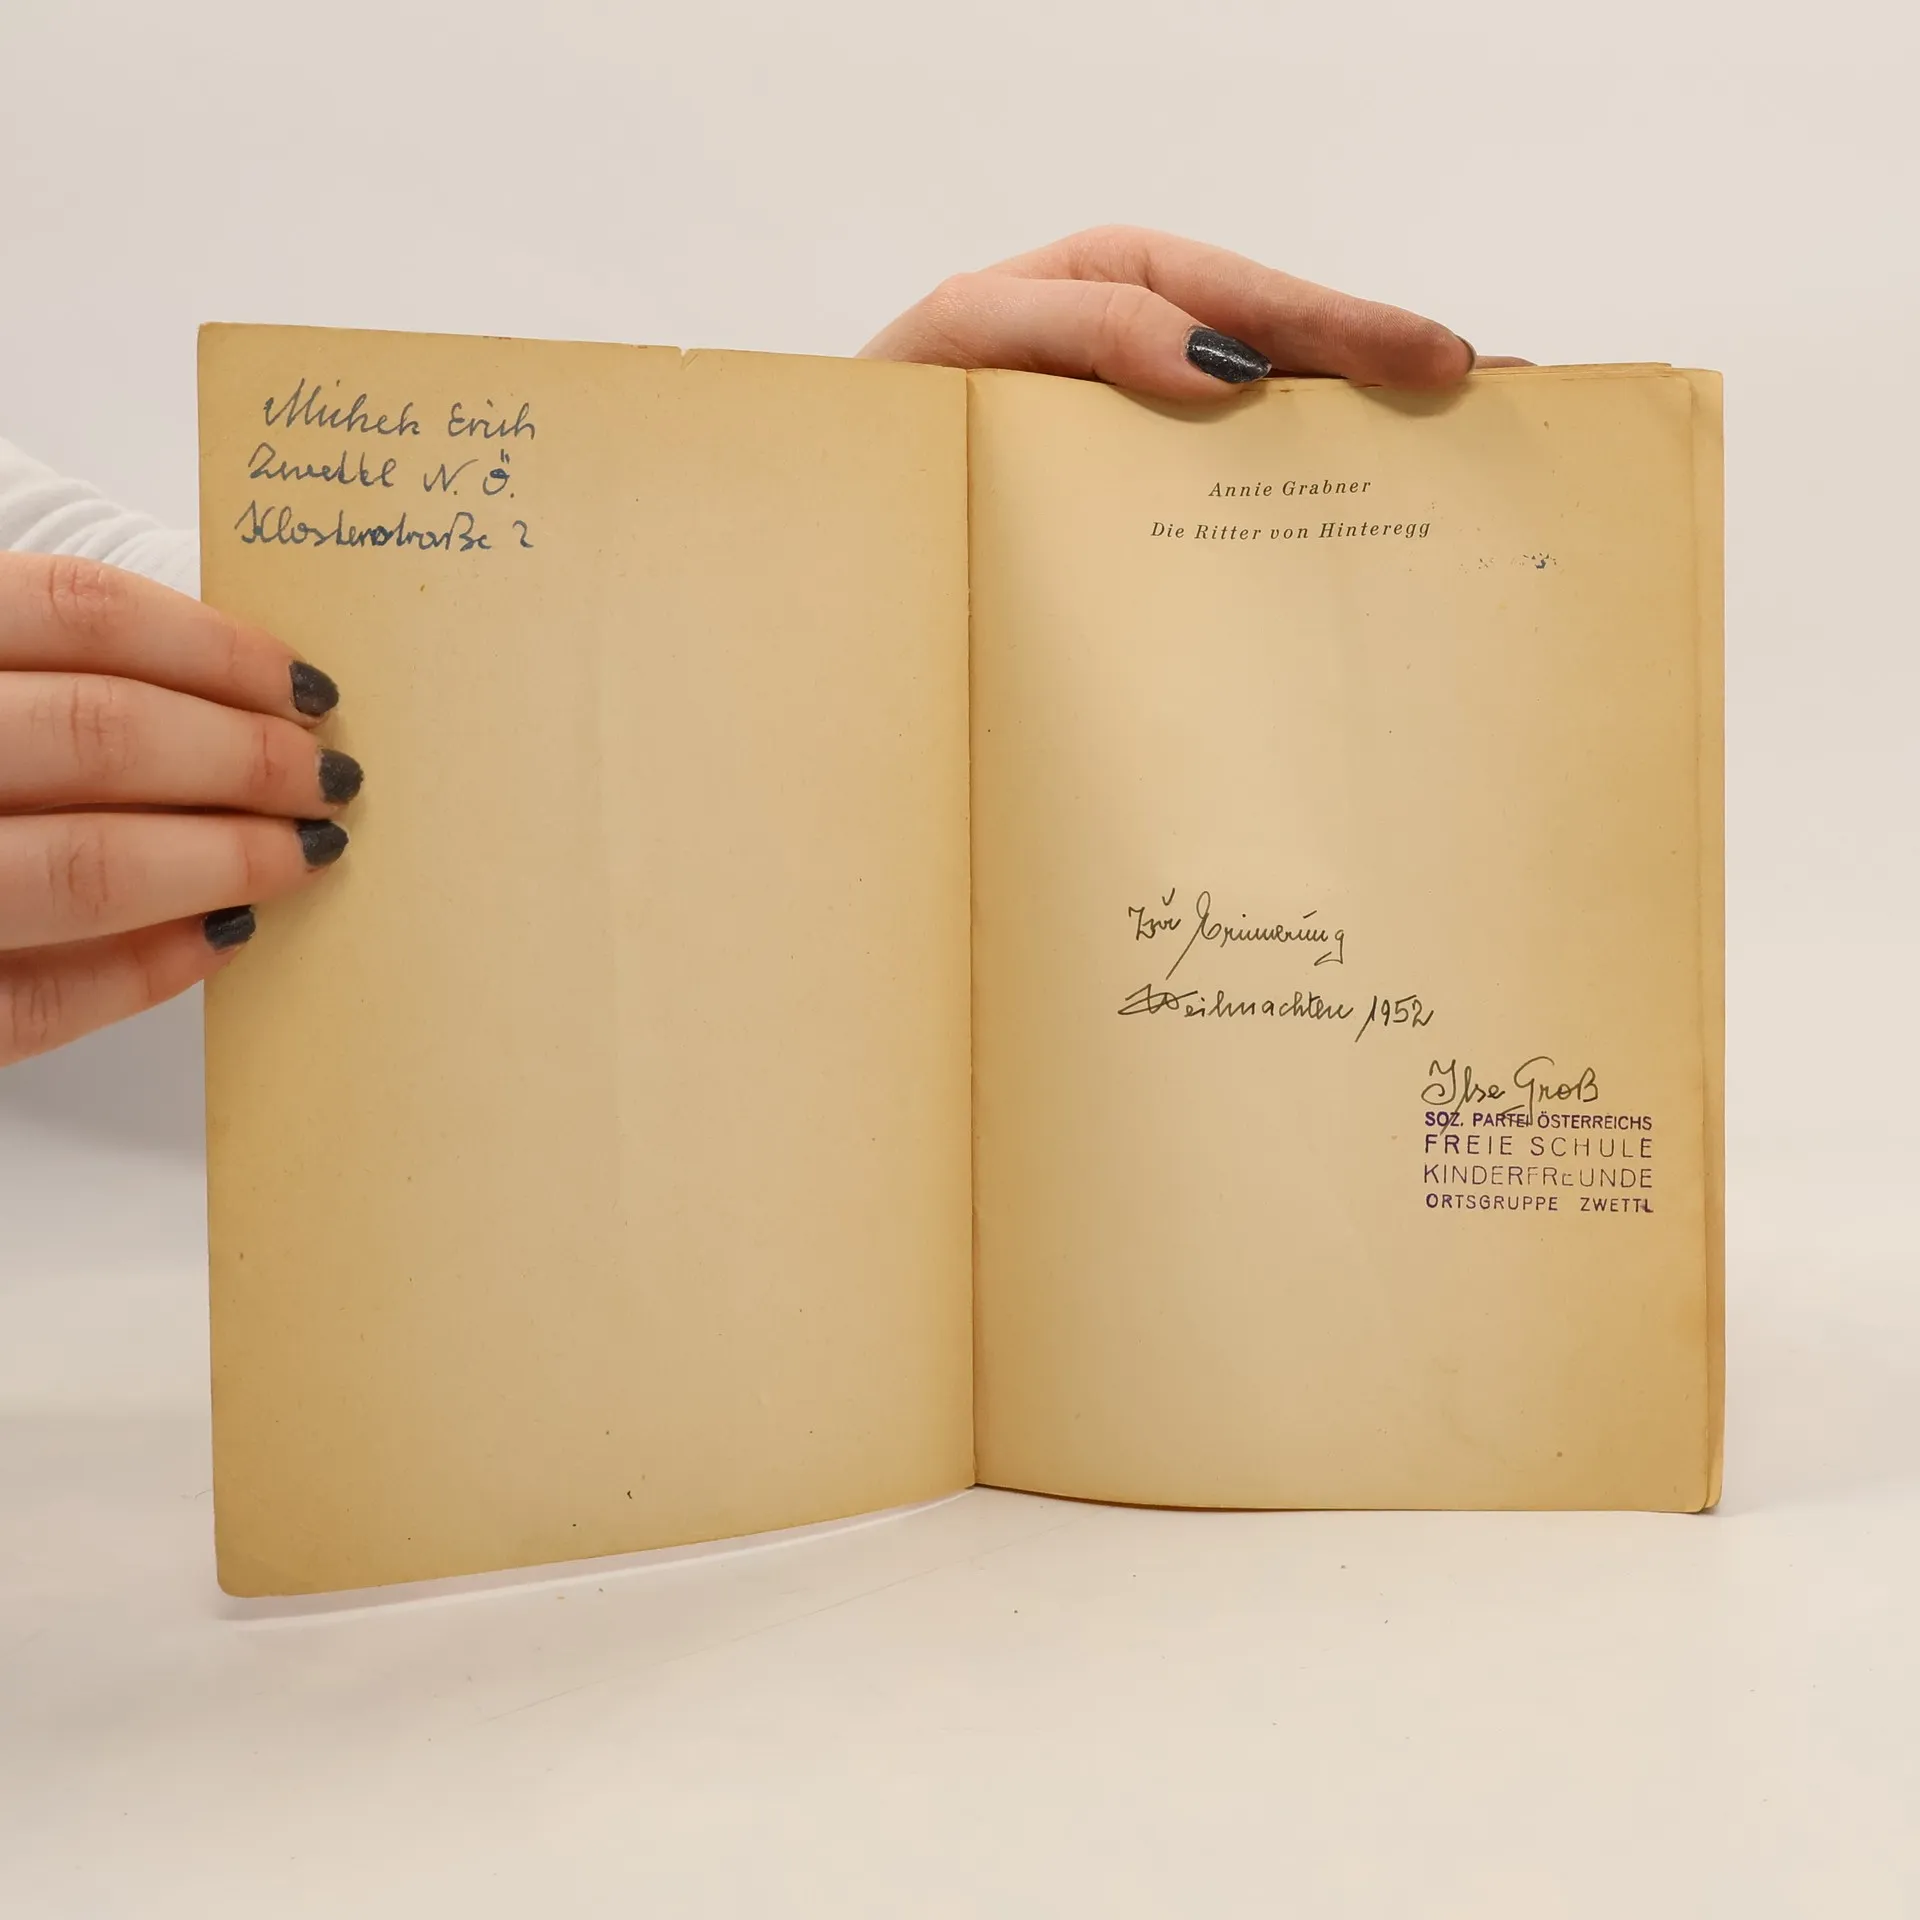 Michek Erich
Zwettl N. Ö.
Klosterstraße 2
Annie Grabner
Die Ritter von Hinteregg
Zur Erinnerung
Weihnachten 1952
Ilse Groß
SOZ. PARTEI ÖSTERREICHS
FREIE SCHULE
KINDERFREUNDE
ORTSGRUPPE ZWETTL